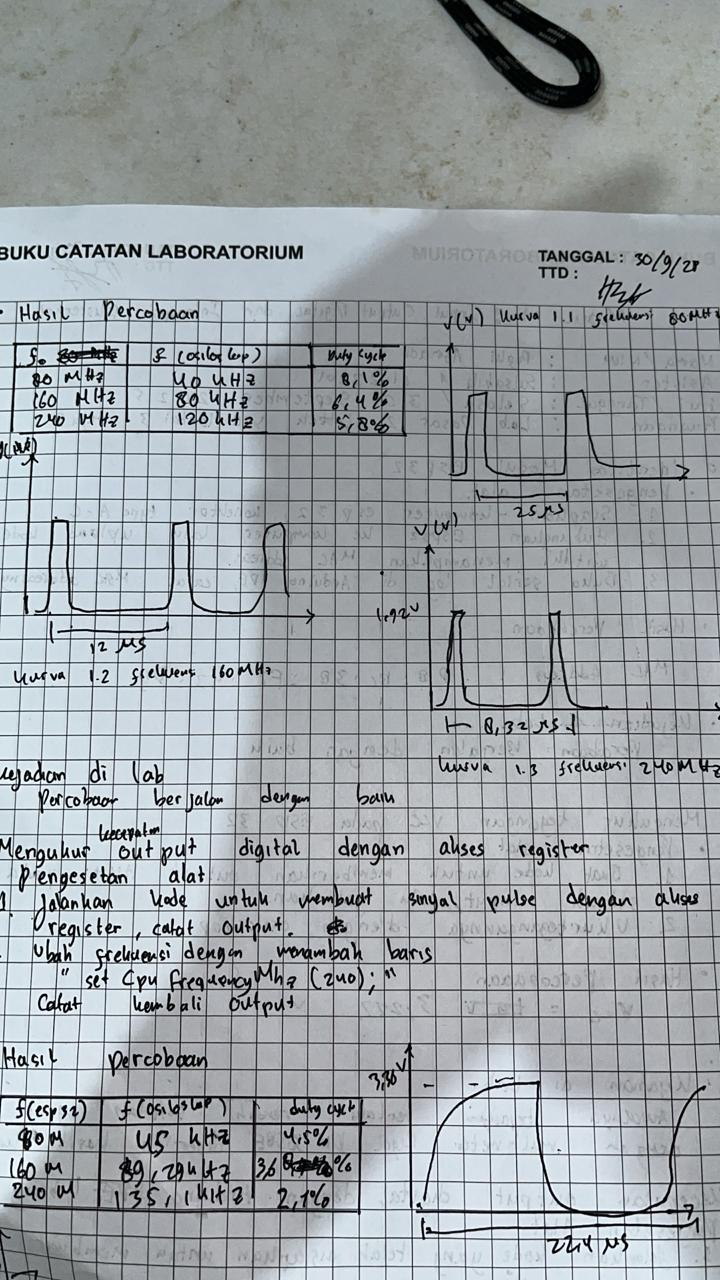 BUKU CATATAN LABORATORIUM
TANGGAL : 30/9/25
TTD :
Hasil Percobaan
f (osiloskop) Duty cycle
80 MHz 40 kHz 8,1%
160 MHz 80 kHz 6,4%
240 MHz 120 kHz 5,8%
V(V) kurva 1.1 frekuensi 80MHz
25 μs
12 μs
kurva 1.2 frekuensi 160MHz
V(V)
1,92V
8,32 μs
kurva 1.3 frekuensi 240MHz
kejadian di lab
Percobaan berjalan dengan baik
Mengukur kecepatan output digital dengan akses register
Pengesetan alat
1. Jalankan kode untuk membuat sinyal pulse dengan akses
register, catat output.
Ubah frekuensi dengan menambah baris
" set Cpu Frequency Mhz (240); "
Catat kembali output
Hasil Percobaan
f(esp32) f(osiloskop) duty cycle
80M 45 kHz 4,5%
160 M 89,29kHz 3,6 %
240 M 135,1 kHz 2,7%
3,36V
22,4 μs